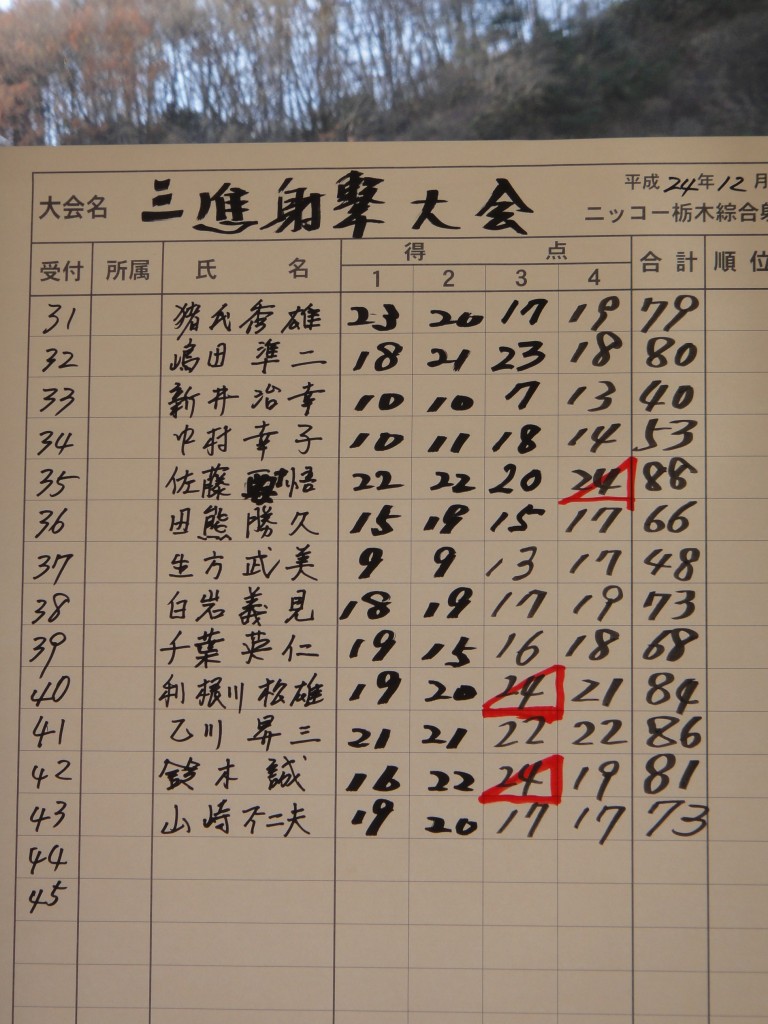 大会名 三進射撃大会 平成24年12月
ニッコー栃木綜合射
受付 所属 氏 名 得 点 合計 順位
1 2 3 4
31 猪氏秀雄 23 20 17 19 79
32 嶋田準二 18 21 23 18 80
33 新井治幸 10 10 7 13 40
34 中村幸子 10 11 18 14 53
35 佐藤 悟 22 22 20 24 88
36 田熊勝久 15 19 15 17 66
37 生方武美 9 9 13 17 48
38 白岩義見 18 19 17 19 73
39 千葉英仁 19 15 16 18 68
40 利根川松雄 19 20 24 21 84
41 乙川昇三 21 21 22 22 86
42 鈴木誠 16 22 24 19 81
43 山崎不二夫 19 20 17 17 73
44
45